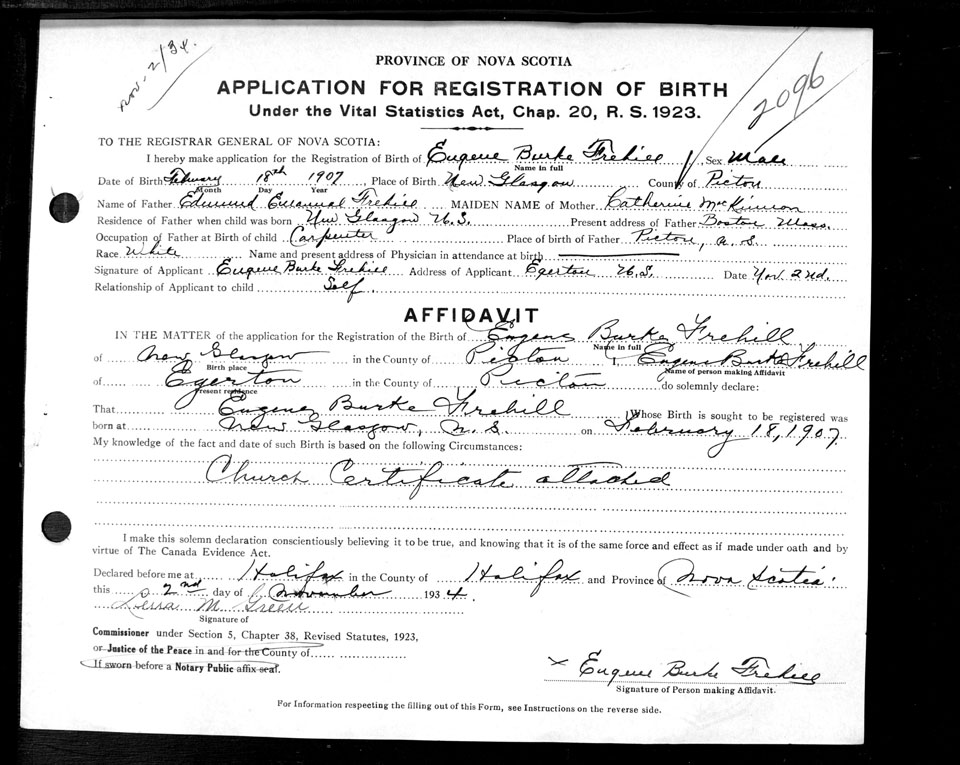 Nov-2/34.
PROVINCE OF NOVA SCOTIA
2096
APPLICATION FOR REGISTRATION OF BIRTH
Under the Vital Statistics Act, Chap. 20, R. S. 1923.
TO THE REGISTRAR GENERAL OF NOVA SCOTIA:
I hereby make application for the Registration of Birth of Eugene Burke Frehill, Sex Male
Name in full
Date of Birth February 18th 1907 Place of Birth New Glasgow County of Pictou
Month Day Year
Name of Father Edmund Emanual Frehill MAIDEN NAME of Mother Catherine MacKinnon
Residence of Father when child was born New Glasgow N.S. Present address of Father Boston Mass.
Occupation of Father at Birth of child Carpenter Place of birth of Father Pictou, N.S.
Race White Name and present address of Physician in attendance at birth
Signature of Applicant Eugene Burke Frehill Address of Applicant Egerton N.S. Date Nov. 2nd.
Relationship of Applicant to child Self.
AFFIDAVIT
IN THE MATTER of the application for the Registration of the Birth of Eugene Burke Frehill
Name in full
of New Glasgow in the County of Pictou I, Eugene Burke Frehill
Birth place Name of person making Affidavit
of Egerton in the County of Pictou do solemnly declare:
Present residence
That Eugene Burke Frehill Whose Birth is sought to be registered was
born at New Glasgow, N.S. on February 18, 1907.
My knowledge of the fact and date of such Birth is based on the following Circumstances:
Church Certificate attached
I make this solemn declaration conscientiously believing it to be true, and knowing that it is of the same force and effect as if made under oath and by
virtue of The Canada Evidence Act.
Declared before me at Halifax in the County of Halifax and Province of Nova Scotia.
this 2nd day of November 1934.
M. Green
Signature of
Commissioner under Section 5, Chapter 38, Revised Statutes, 1923,
or Justice of the Peace in and for the County of
If sworn before a Notary Public affix seal.
x Eugene Burke Frehill
Signature of Person making Affidavit.
For Information respecting the filling out of this Form, see Instructions on the reverse side.